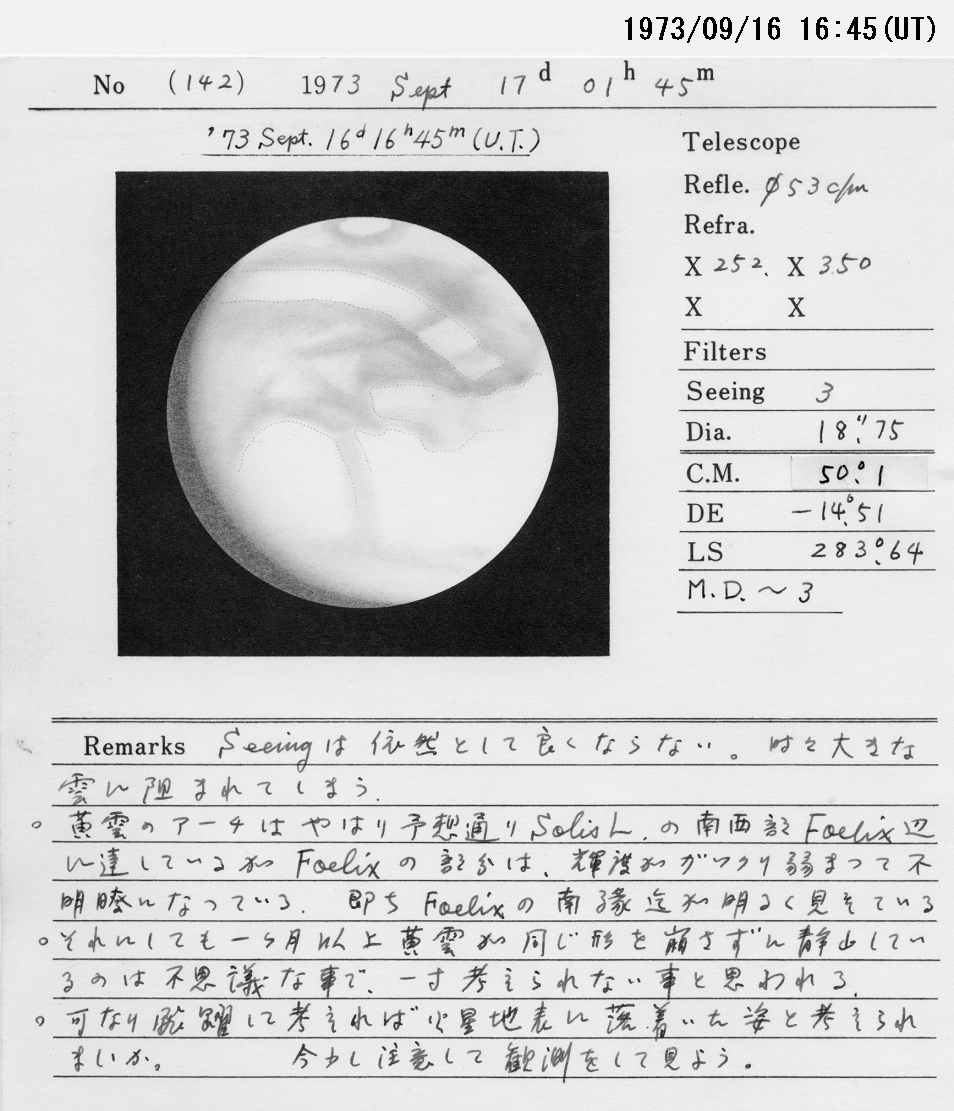 1973/09/16 16:45(UT)
No (142) 1973 Sept 17d 01h 45m
'73 Sept. 16d 16h 45m (U.T.)
Telescope
Refle. φ53 c/m
Refra.
X 252. X 350
X X
Filters
Seeing 3
Dia. 18".75
C.M. 50°.1
DE -14°.51
LS 283°.64
M.D. ~ 3
Remarks Seeingは依然として良くならない。時々大きな
雲に阻まれてしまう.
○ 黄雲のアーチはやはり予想通りSolis L.の南西部Foelix辺
に達しているがFoelixの部分は、輝度がガックリ弱まって不
明瞭になっている. 即ちFoelixの南縁迄が明るく見えている
○ それにしても一ヶ月以上黄雲が同じ形を崩さずに静止してい
るのは不思議な事で、一寸考えられない事と思われる.
○ 可なり飛躍して考えれば火星地表に落着いた姿と考えられ
まいか。 今少し注意して観測をして見よう。